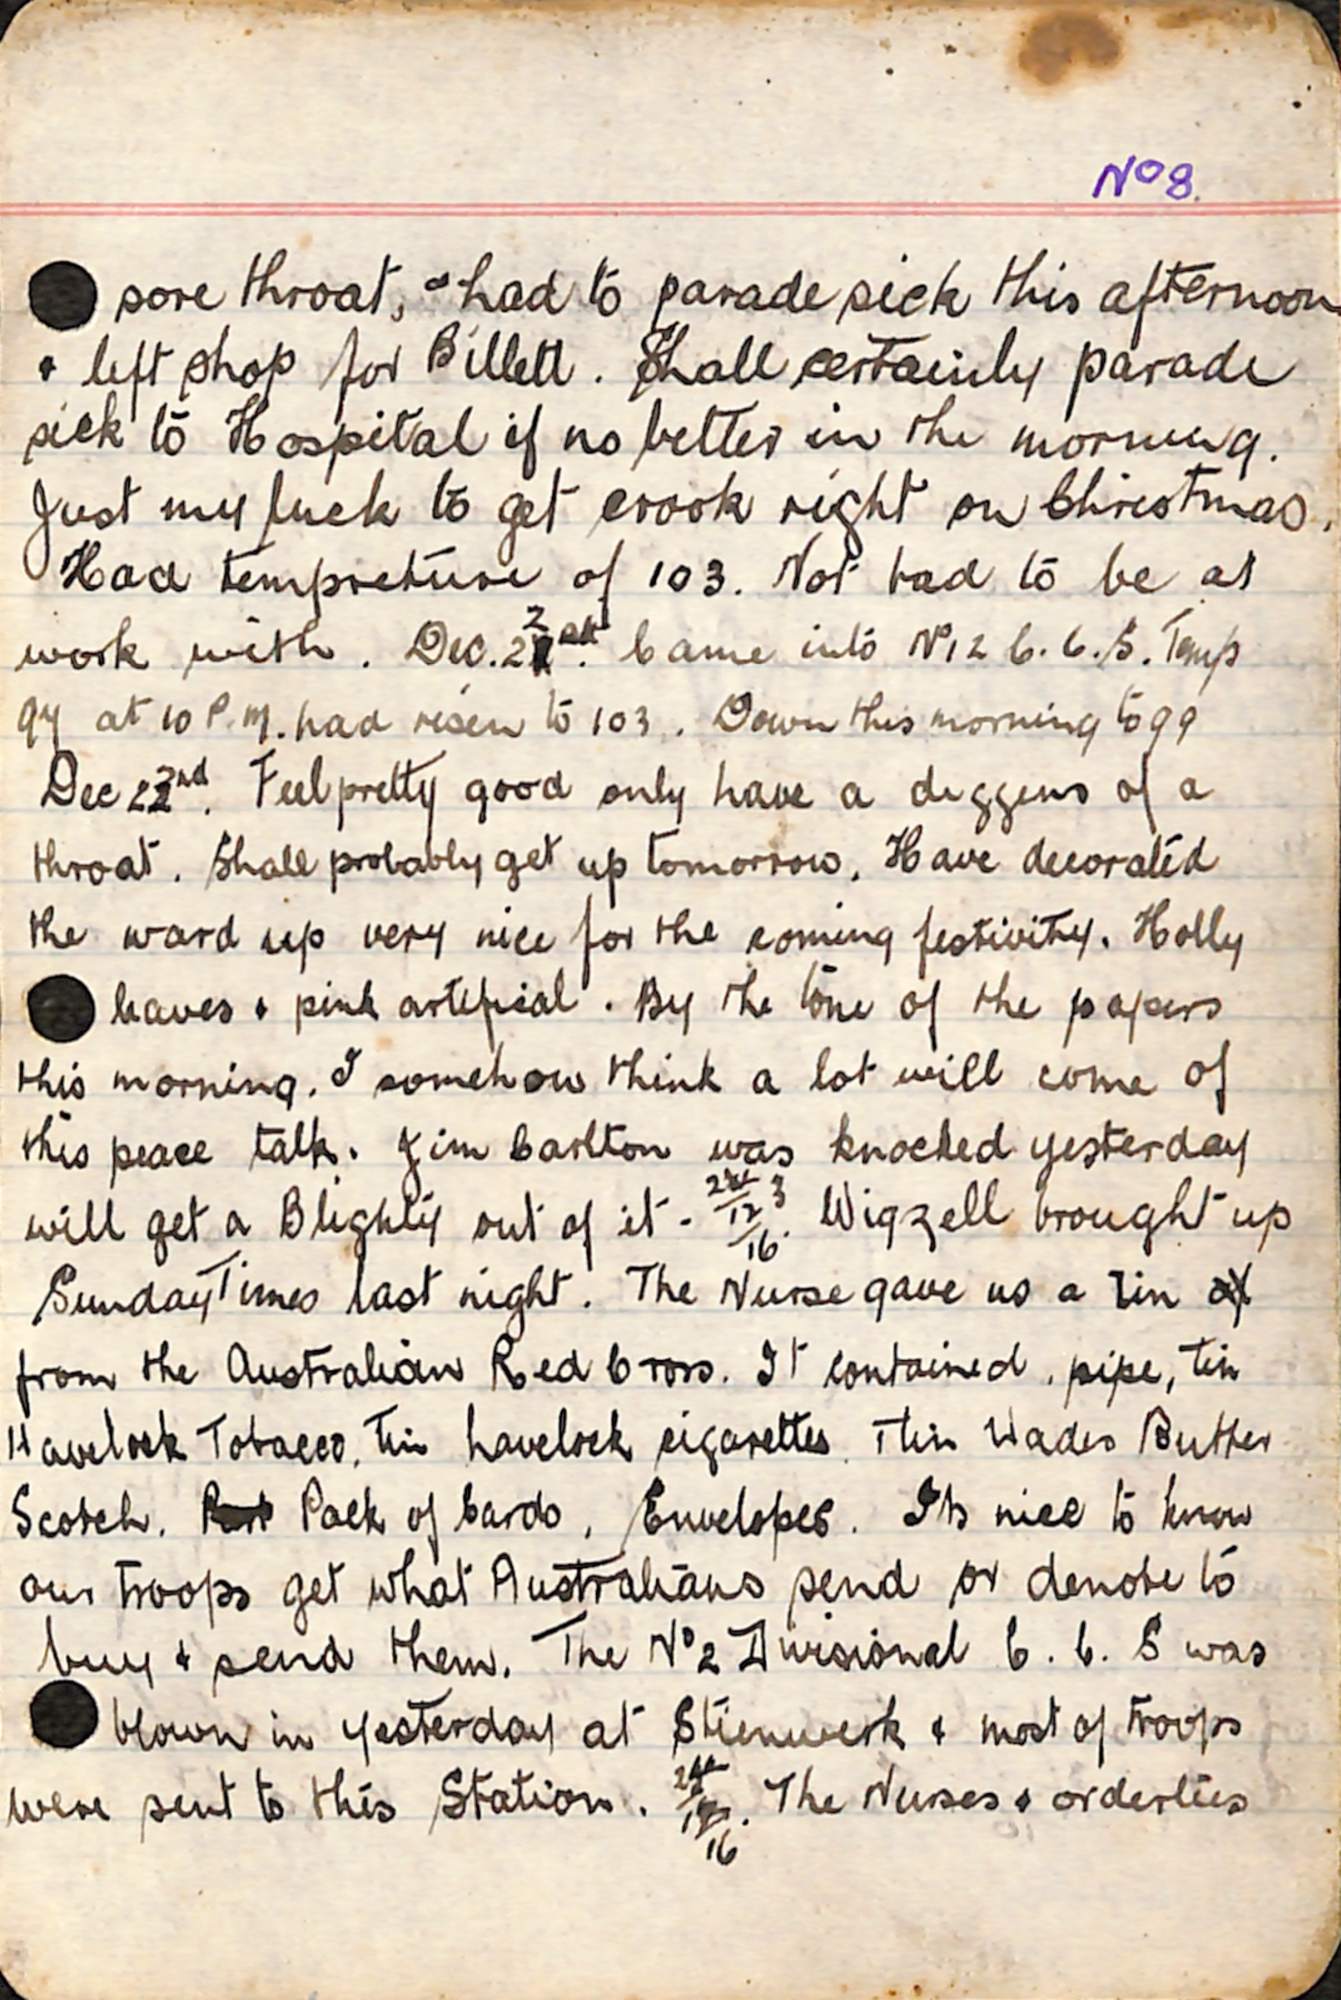 No 8.
sore throat, & had to parade sick this afternoon
& left shop for Billett. Shall certainly parade
sick to Hospital if no better in the morning.
Just my luck to get crook right on Christmas.
Had tempreture of 103. Not bad to be at
work with. Dec. 22 Came into No 12 C.C.S. Temp
at 10 P.M. had risen to 103. Down this morning to 99
Dec 22nd. Feel pretty good only have a diggens of a
throat. Shall probably get up tomorrow. Have decorated
the ward up very nice for the coming festivity. Holly
leaves & pink artifical. By the tone of the papers
this morning. I somehow think a lot will come of
this peace talk. Jim Carlton was knocked yesterday
will get a Blighty out of it - 23/12/16. Wigzell brought up
Sunday Times last night. The Nurse gave us a Tin
from the Australian Red Cross. It contained, pipe, tin
Havelock Tobacco, Tin havelock cigarettes. Tin Wades Butter
Scotch. Pack of Cards, Envelopes. Its nice to know
our troops get what Australians send or denote to
buy & send them. The No 2 Divisional C.C.S was
blown in yesterday at Stienwerk & most of troops
were sent to this Station. 24/12/16. The Nurses & orderlies